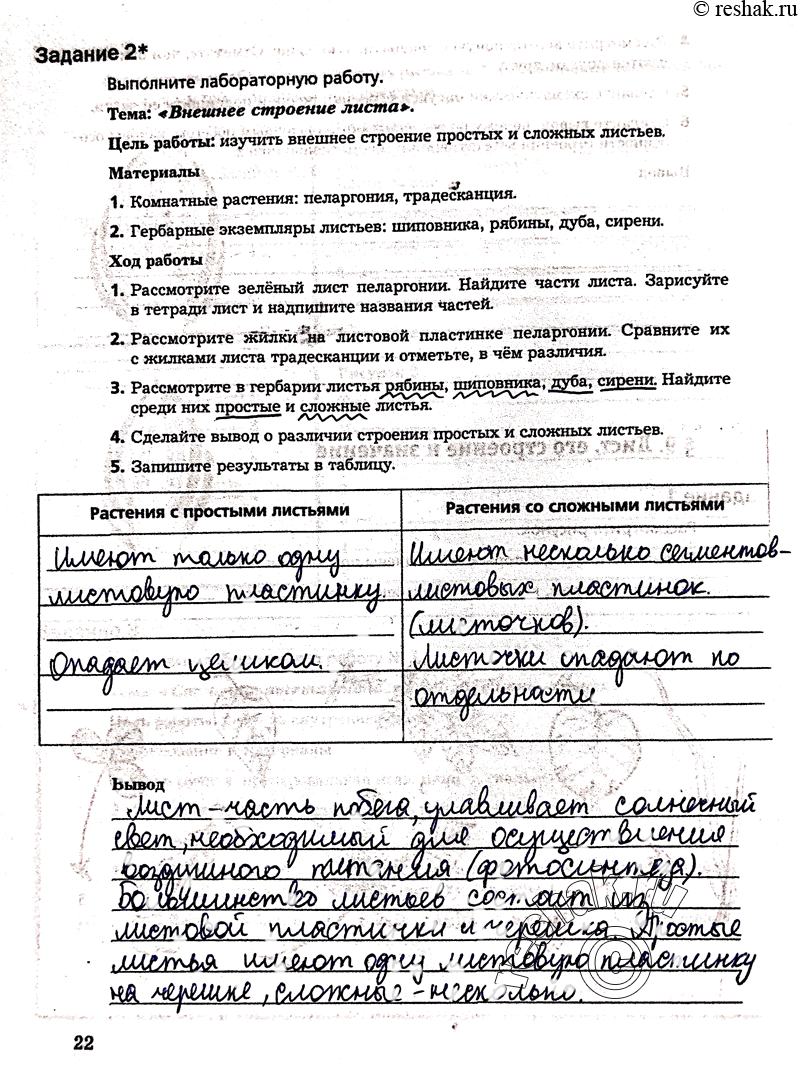 © reshak.ru
Задание 2*
Выполните лабораторную работу.
Тема: «Внешнее строение листа».
Цель работы: изучить внешнее строение простых и сложных листьев.
Материалы
1. Комнатные растения: пеларгония, традесканция.
2. Гербарные экземпляры листьев: шиповника, рябины, дуба, сирени.
Ход работы
1. Рассмотрите зелёный лист пеларгонии. Найдите части листа. Зарисуйте
в тетради лист и надпишите названия частей.
2. Рассмотрите жилки на листовой пластинке пеларгонии. Сравните их
с жилками листа традесканции и отметьте, в чём различия.
3. Рассмотрите в гербарии листья рябины, шиповника, дуба, сирени. Найдите
среди них простые и сложные листья.
4. Сделайте вывод о различии строения простых и сложных листьев.
5. Запишите результаты в таблицу.
Растения с простыми листьями
Имеют только одну
листовую пластинку.
Опадает целиком.
Растения со сложными листьями
Имеют несколько сегментов-
листовых пластинок.
(листочков).
Листочки опадают по
отдельности
Вывод
Лист - часть побега, улавливает солнечный
свет, необходимый для осуществления
воздушного питания (фотосинтеза).
Большинство листьев состоит из
листовой пластинки и черешка. Простые
листья имеют одну листовую пластинку
на черешке, сложные - несколько.
22